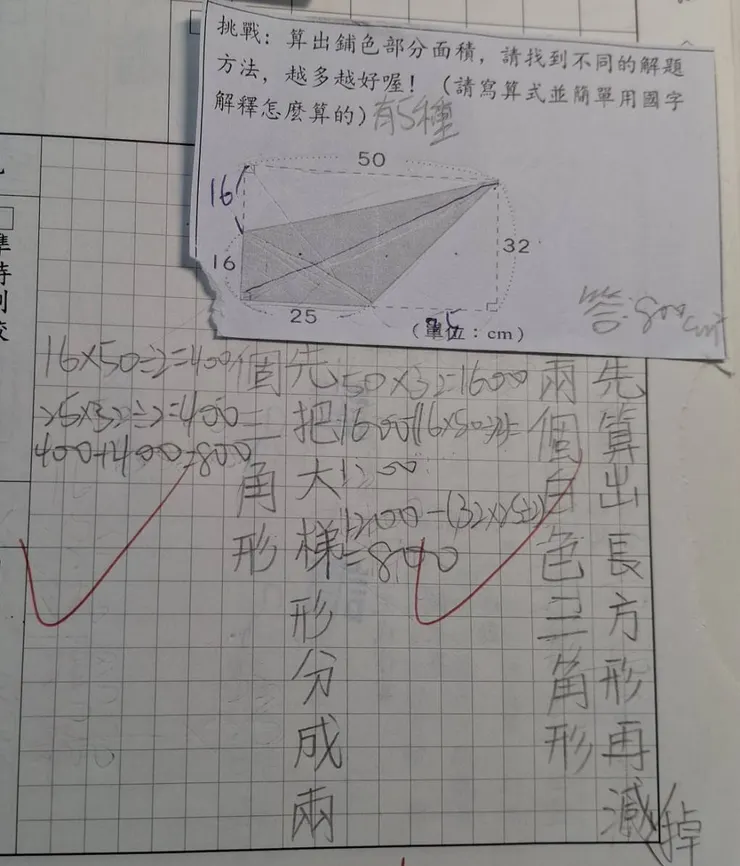 挑戰：算出鋪色部分面積，請找到不同的解題
方法，越多越好喔！（請寫算式並簡單用國字
解釋怎麼算的）有5種
50
16
16
32
25
25
（單位：cm）
答：800cm²
先算出長方形再減掉
兩個白色三角形
50×32=1600
1600-(16×50÷2)=
1200
1200-(32×25÷2)
=800
先把大梯形分成兩
個三角形
16×50÷2=400
25×32÷2=400
400+400=800